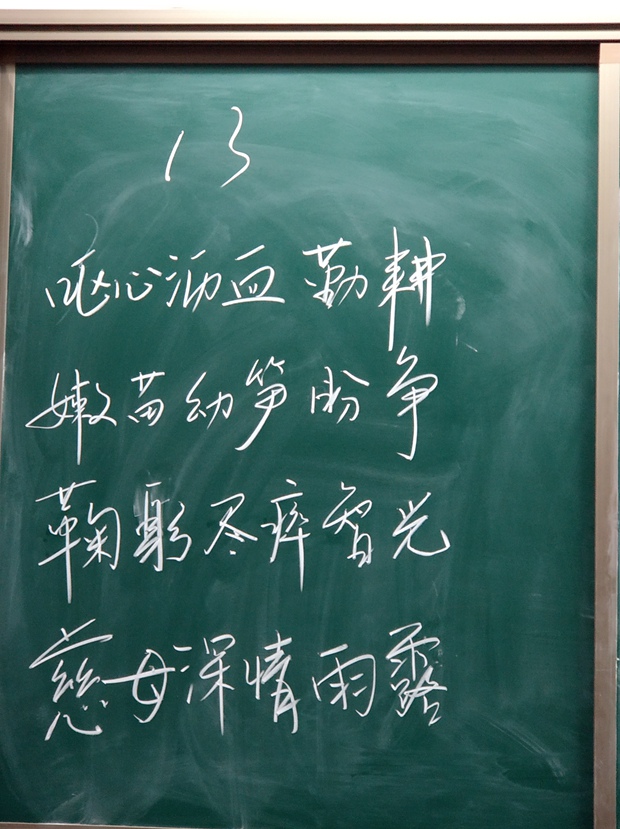 13
呕心沥血勤耕
嫩苗幼笋盼争
鞠躬尽瘁智光
慈母深情雨露